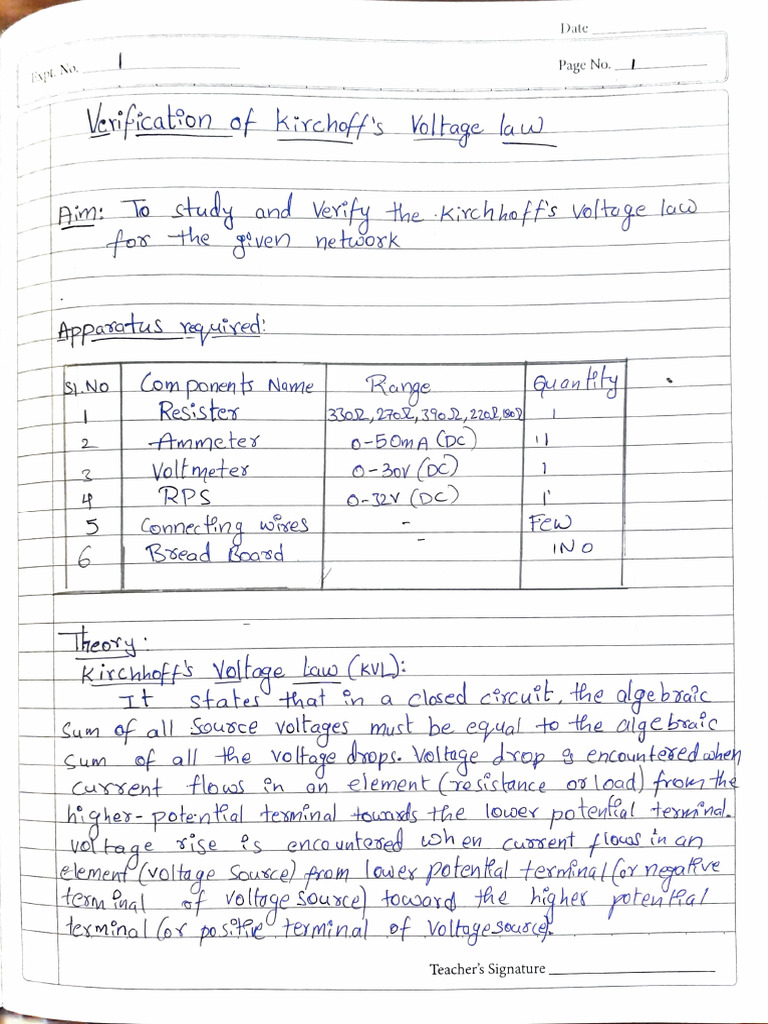 Date
Expt. No. 1
Page No. 1
Verification of Kirchoff's Voltage law
Aim: To study and verify the Kirchhoff's voltage law
for the given network
Apparatus required:
Sl.No Components Name Range Quantity
1 Resister 330Ω, 270Ω, 390Ω, 220Ω, 180Ω 1
2 Ammeter 0-50mA (DC) 11
3 Voltmeter 0-30V (DC) 1
4 RPS 0-32V (DC) 1
5 Connecting wires - Few
6 Bread Board - 1NO
Theory:
Kirchhoff's Voltage Law (KVL):
It states that in a closed circuit, the algebraic
sum of all source voltages must be equal to the algebraic
sum of all the voltage drops. Voltage drop is encountered when
current flows in an element (resistance or load) from the
higher-potential terminal towards the lower potential terminal.
voltage rise is encountered when current flows in an
element (voltage source) from lower potential terminal (or negative
terminal of voltage source) toward the higher potential
terminal (or positive terminal of voltage source).
Teacher's Signature